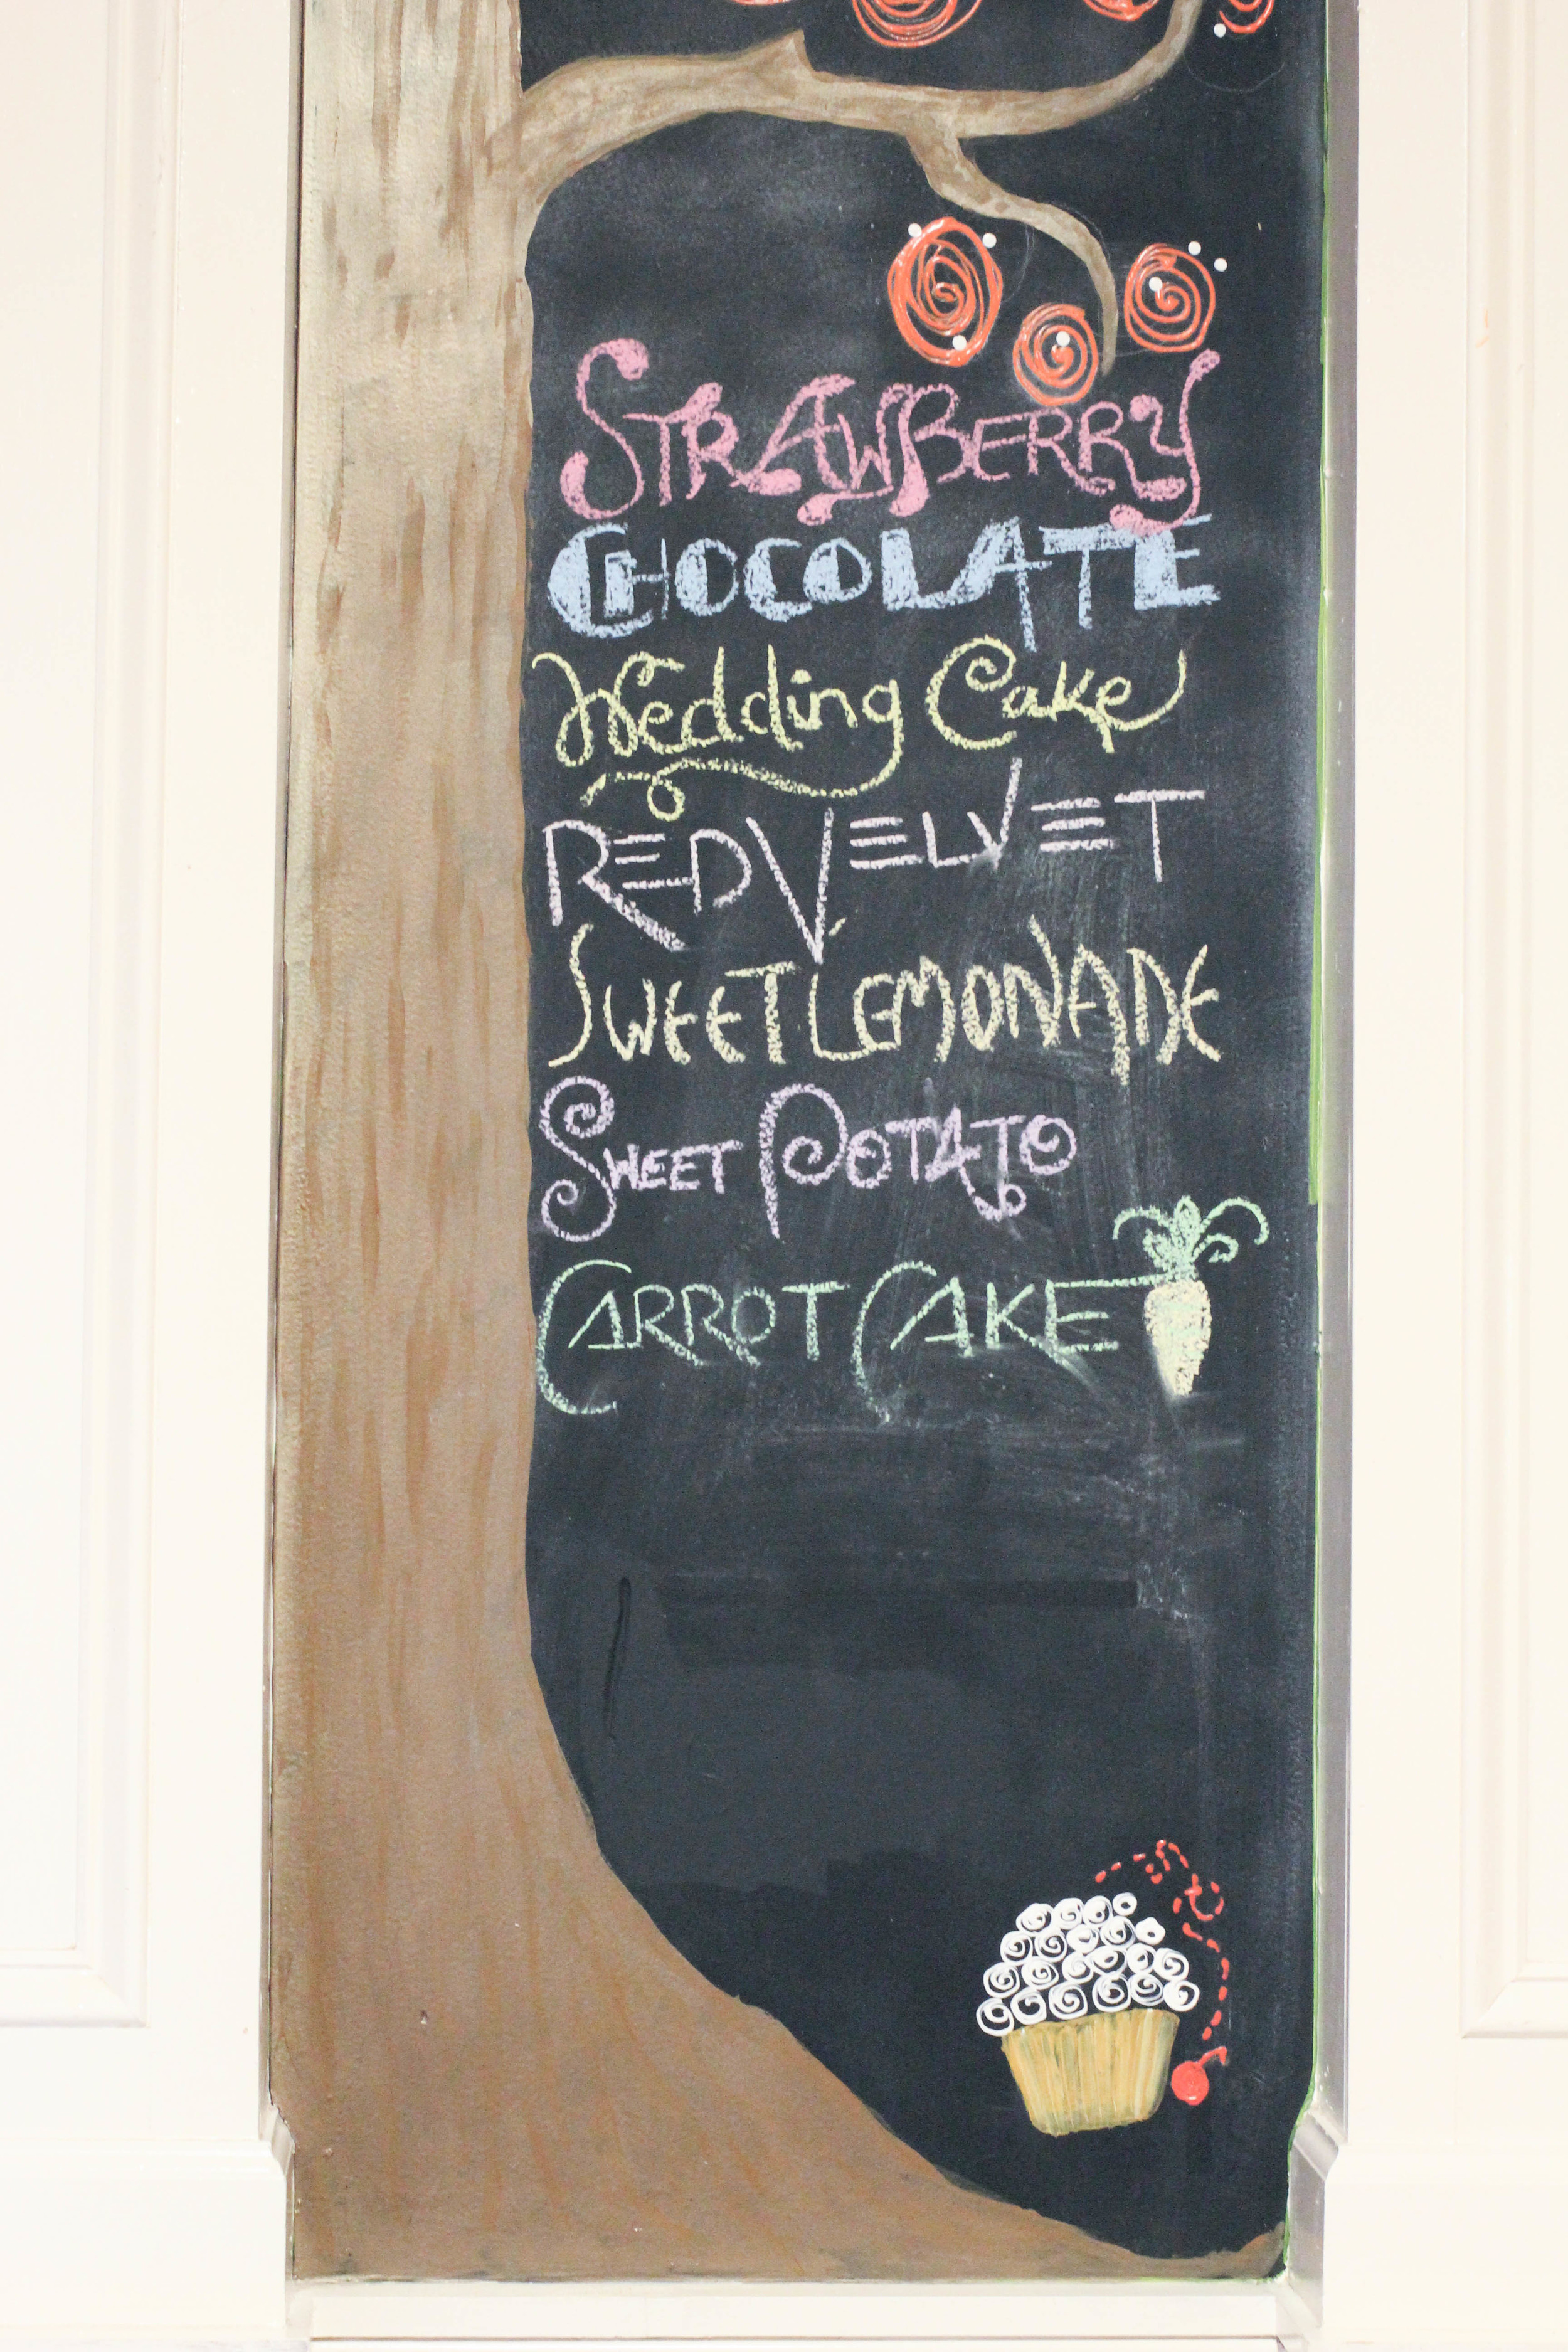 STRAWBERRY
CHOCOLATE
Wedding Cake
RED VELVET
SWEET LEMONADE
SWEET POTATO
CARROT CAKE